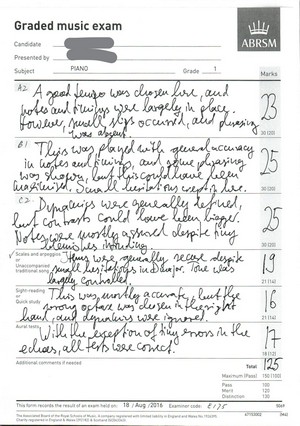 Graded music exam
ABRSM
Candidate
Presented by
Subject PIANO Grade 1
Marks
A2 A good tempo was chosen here, and
notes and timings were largely in place.
However, small slips occurred, and phrasing
was absent.
23
30 (20)
B1 This was played with general accuracy
in notes and timing, and some phrasing
was shown, but this could have been
maximised. Small hesitations crept in here.
25
30 (20)
C2 Dynamics were generally defined,
but contrasts could have been bigger.
Notes were mostly assured despite tiny
blemishes intruding.
25
30 (20)
Scales and arpeggios
or
Unaccompanied
traditional song
Items were generally secure despite
small hesitations in D major. Tone was
largely controlled.
19
21 (14)
Sight-reading
or
Quick study
This was mostly accurate, but the
wrong octave was chosen in the right
hand, and dynamics were ignored.
16
21 (14)
Aural tests
With the exception of tiny errors in the
echoes, all tests were correct.
17
18 (12)
Additional comments if needed
Total 125
Maximum (Pass) 150 (100)
Pass 100
Merit 120
Distinction 130
This form records the result of an exam held on 18 / Aug / 2016 Examiner code: E175